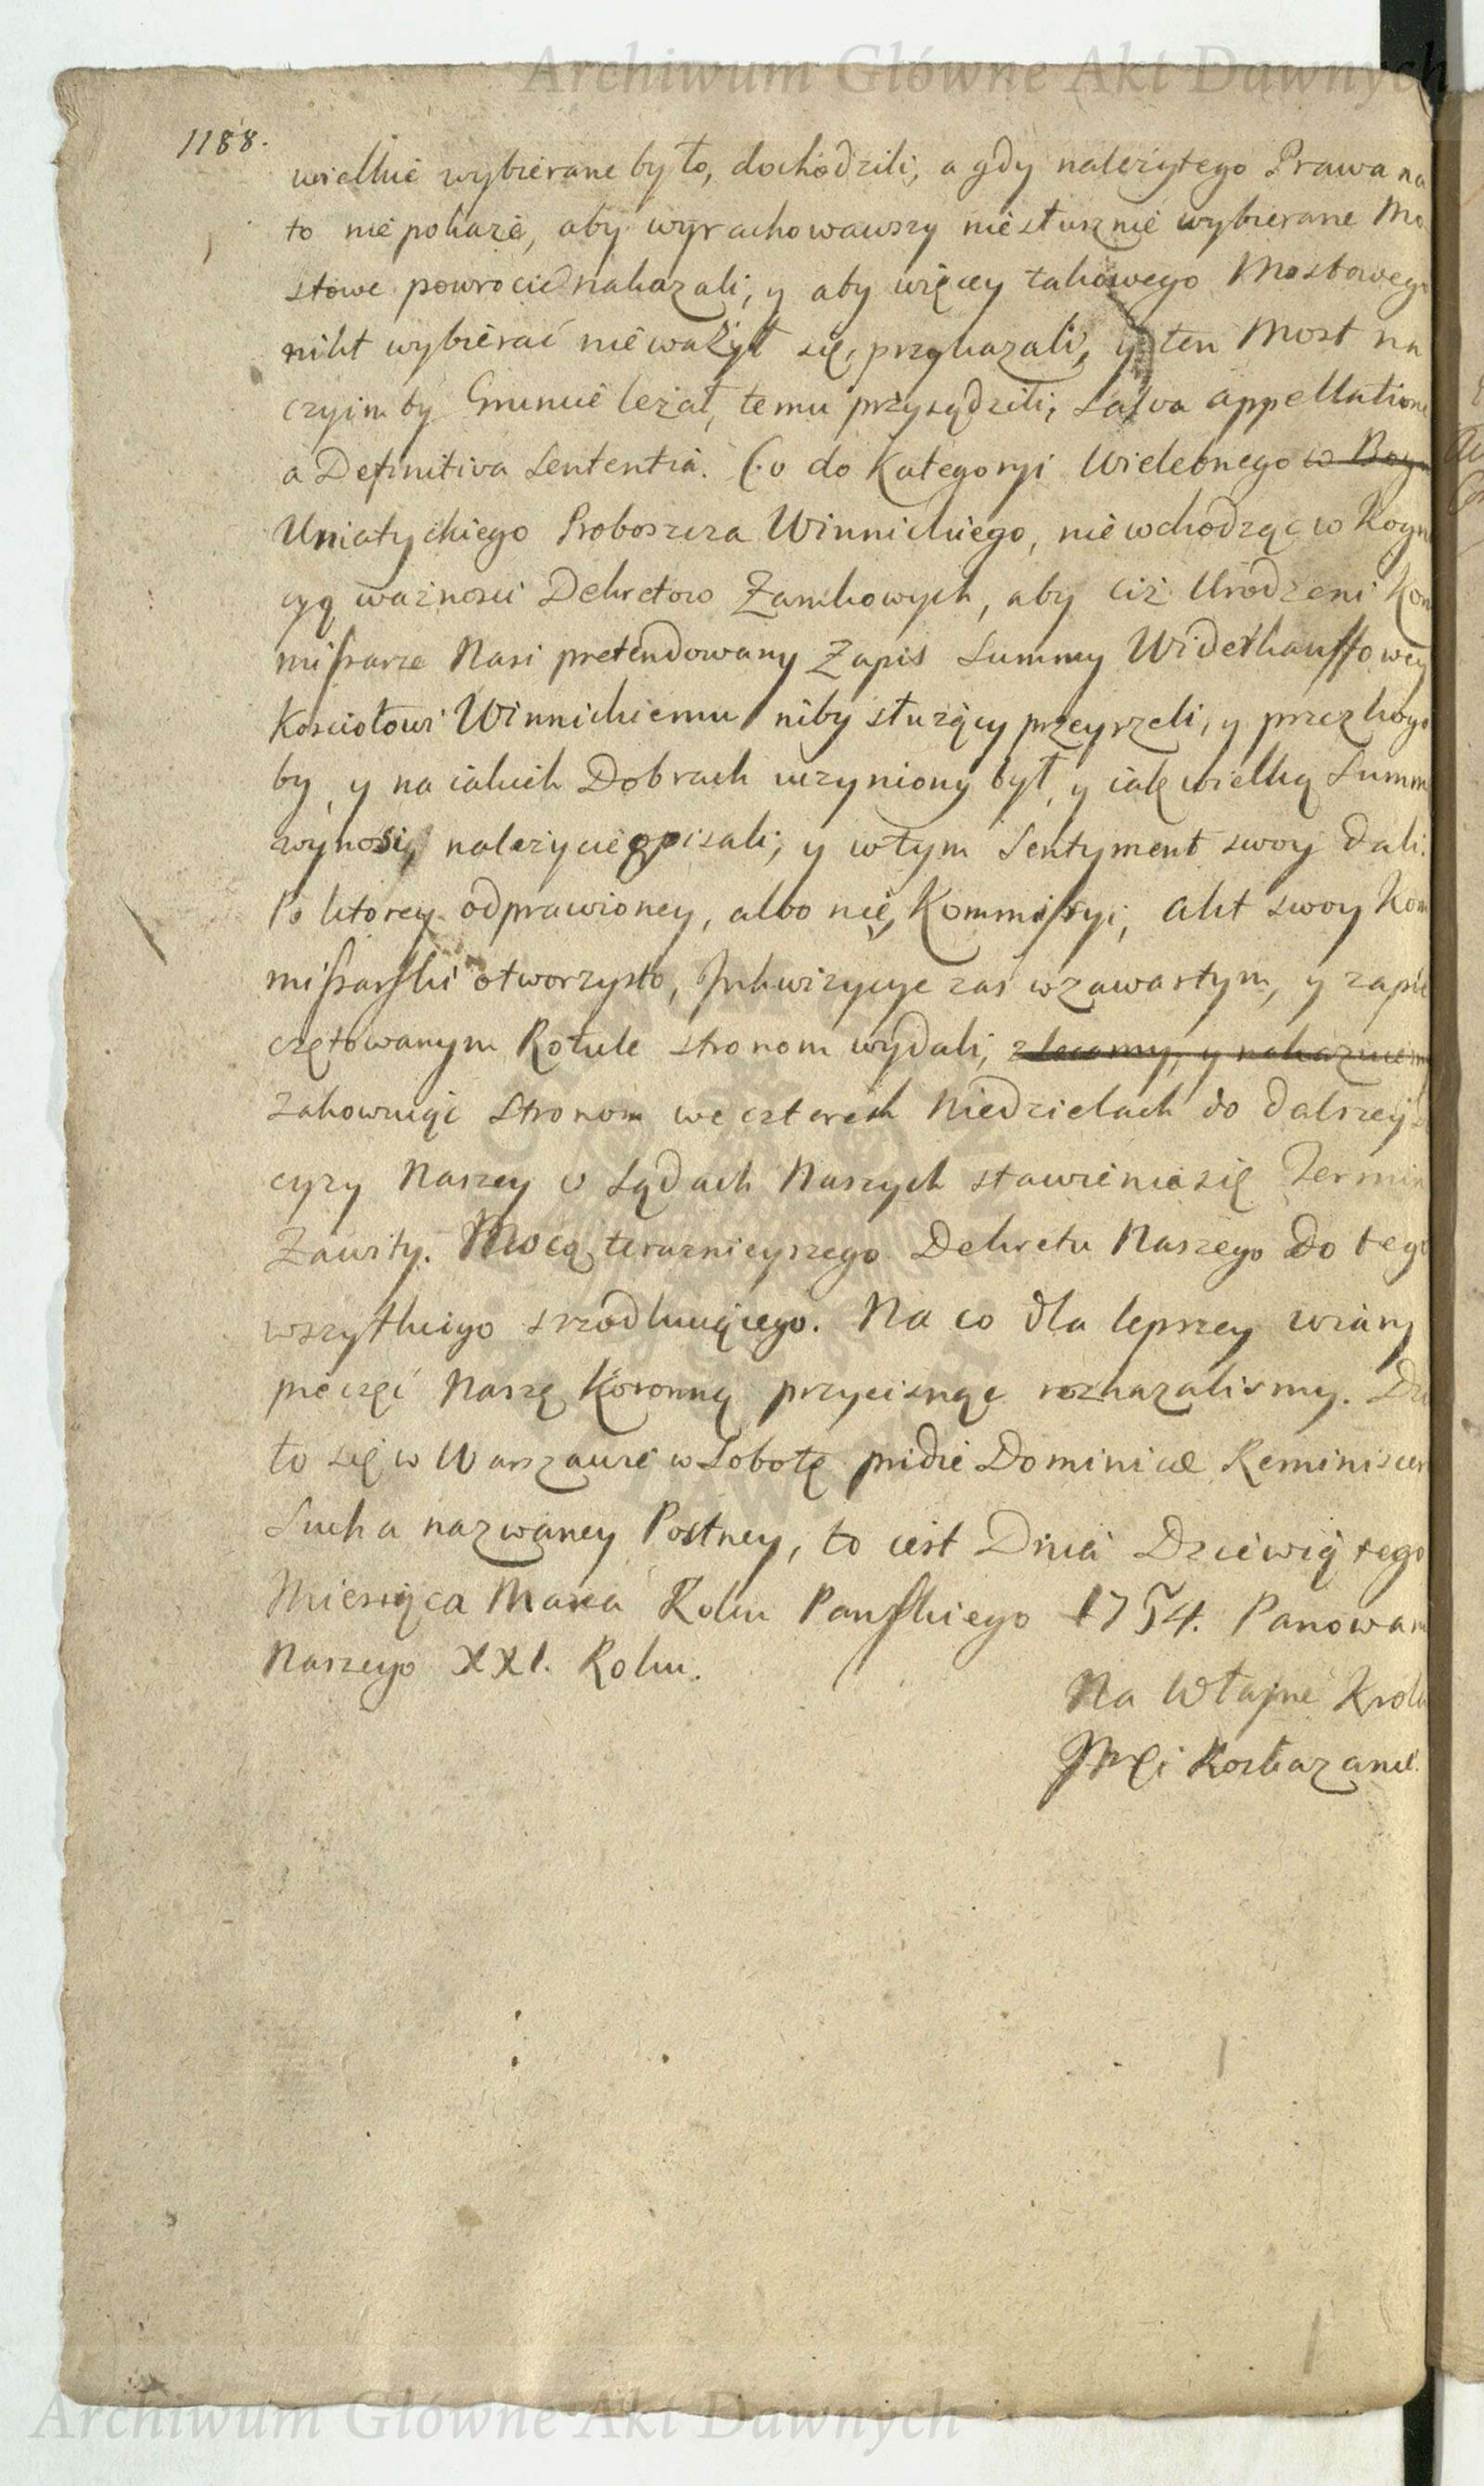 Archiwum Główne Akt Dawnych
1188.
wielkie wybierane było, dochodzili, a gdy należytego Prawa na
to nie pokaże, aby wyrachowawszy niesłusznie wybierane Mo
stowe powrocić nakazali, y aby więcey takowego Mostowego
nikt wybierać nie ważył się, przykazali, y ten Most na
czyim by Gruncie leżał, temu przysądzili, salva appellatione
a Definitiva Sententia. Co do Kategoryi Wielebnego w Bogu
Uniatyckiego Proboszcza Winnickiego, nie wchodząc w Kogni
cyą ważnosci Dekretow Zamkowych, aby ciż Urodzeni Kom
missarze Nasi pretendowany Zapis Summy
Kosciołowi Winnickiemu niby służący przeyrzeli, y przez kogo
by, y na iakich Dobrach uczyniony był, y iak wielką Summ
wynosi, należycie opisali, y w tym Sentyment swoy dali.
Po ktorey odprawioney, albo nie, Kommissyi, akt swoy Kom
missarski otworzysto, Inkwizycye zas w zawartym, y zapie
czętowanym Rotule stronom wydali, zlecamy, y nakazuiemy
zakowuiąc Stronom we czterech Niedzielach do dalszey
cyzy Naszey w Sądach Naszych stawienia się Termin
Zawity. Mocą teraznieyszego Dekretu Naszego do tego
wszytkiego srzodkuiącego. Na co dla lepszey wiary
pieczęć Naszą Koronną przycisnąć rozkazalismy. Dzia
ło się w Warszawie w Sobotę pridie Dominicæ Reminiscere
Sucha nazwaney Postney, to iest Dnia Dziewiątego
Miesiąca Marca Roku Panskiego 1754. Panowan
Naszego XXI. Roku.
Na Własne Krola
JMCi Rozkazanie.
Archiwum Główne Akt Dawnych